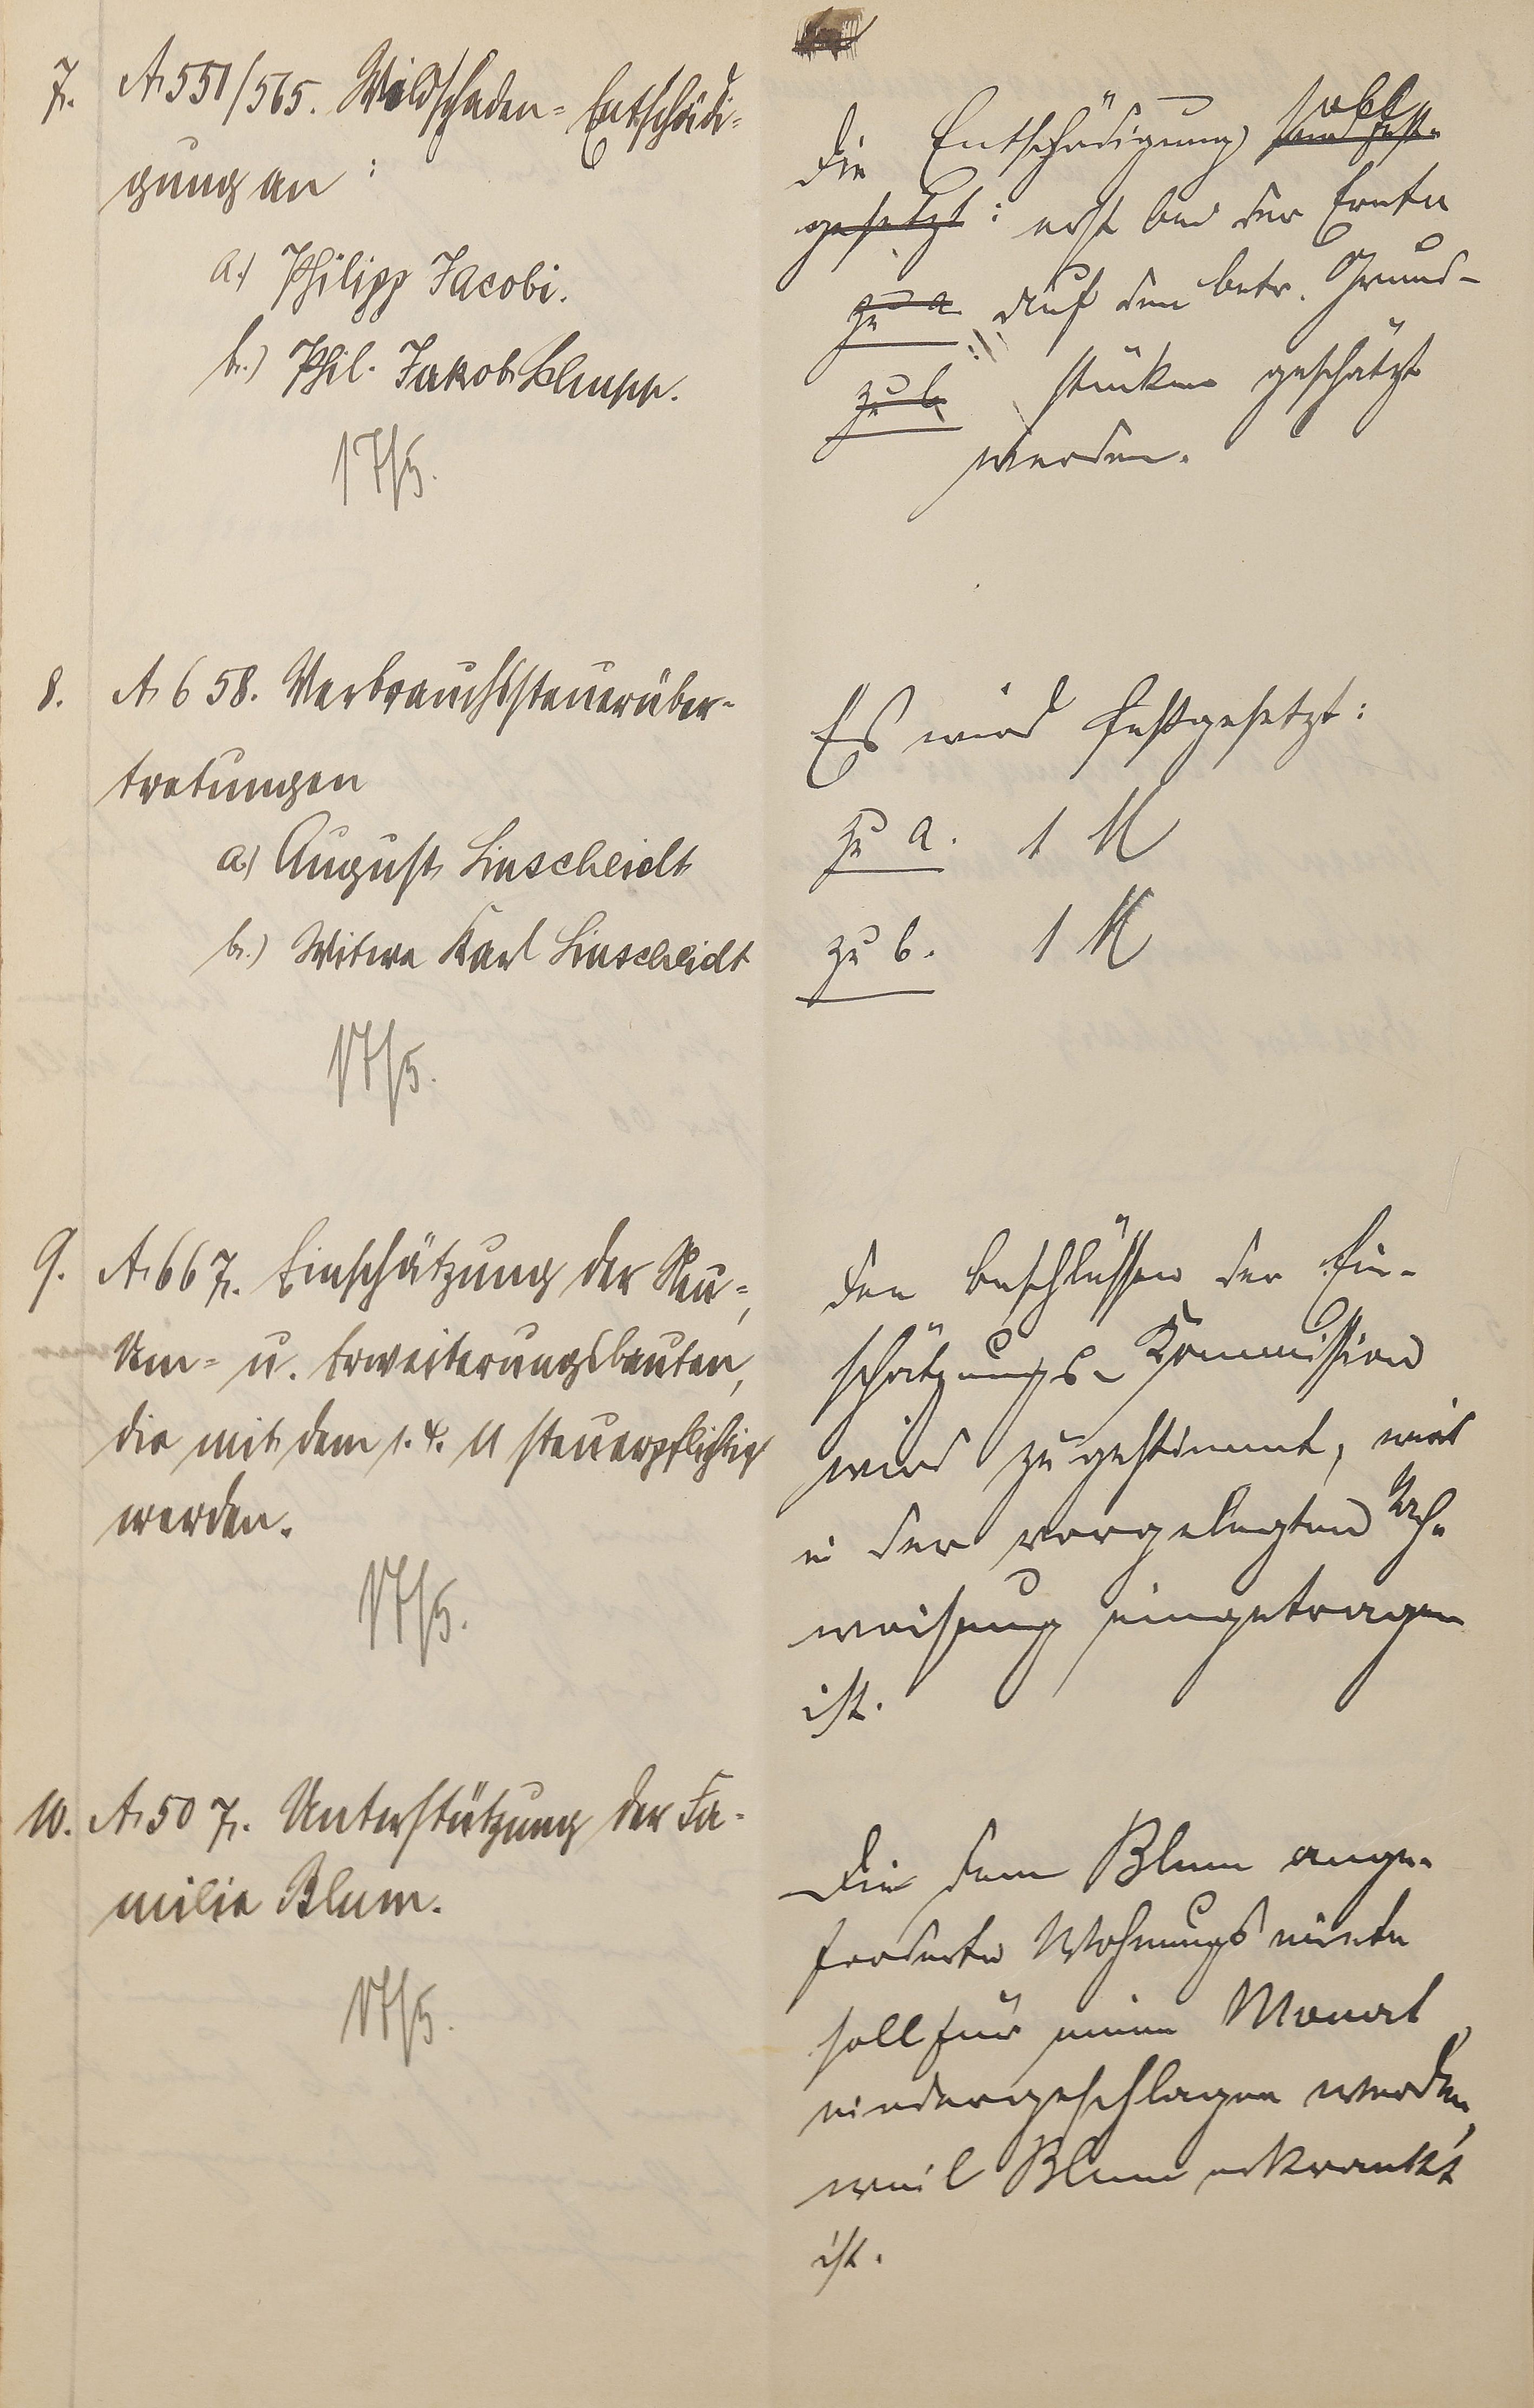 7. A 551/565. Wildschaden-Entschädi-
gung an:
a.) Philipp Jacobi.
b.) Phil. Jakob Schupp.
17/5.
Die Entschädigung soll
wird fest-
gesetzt: erst bei der Ernte
zu a auf den betr. Grund-
zu b stücken geschätzt
werden.
8. A 658. Verbrauchssteuerüber-
tretungen
a.) August Linscheidt
b.) Witwe Karl Linscheidt
17/5.
Es wird festgesetzt:
zu a. 1 M
zu b. 1 M
9. A 667. Einschätzung der Neu-,
Um- u. Erweiterungsbauten,
die mit dem 1. 4. 11 steuerpflichtig
werden.
17/5.
Den Beschlüssen der Ein-
schätzungs-Kommission
wird zugestimmt, wie
in der vorgelegten Nach-
weisung eingetragen
ist.
10. A 507. Unterstützung der Fa-
milie Blum.
17/5.
Die dem Blum ange-
forderte Wohnungsmiete
soll für einen Monat
niedergeschlagen werden,
weil Blum erkrankt
ist.